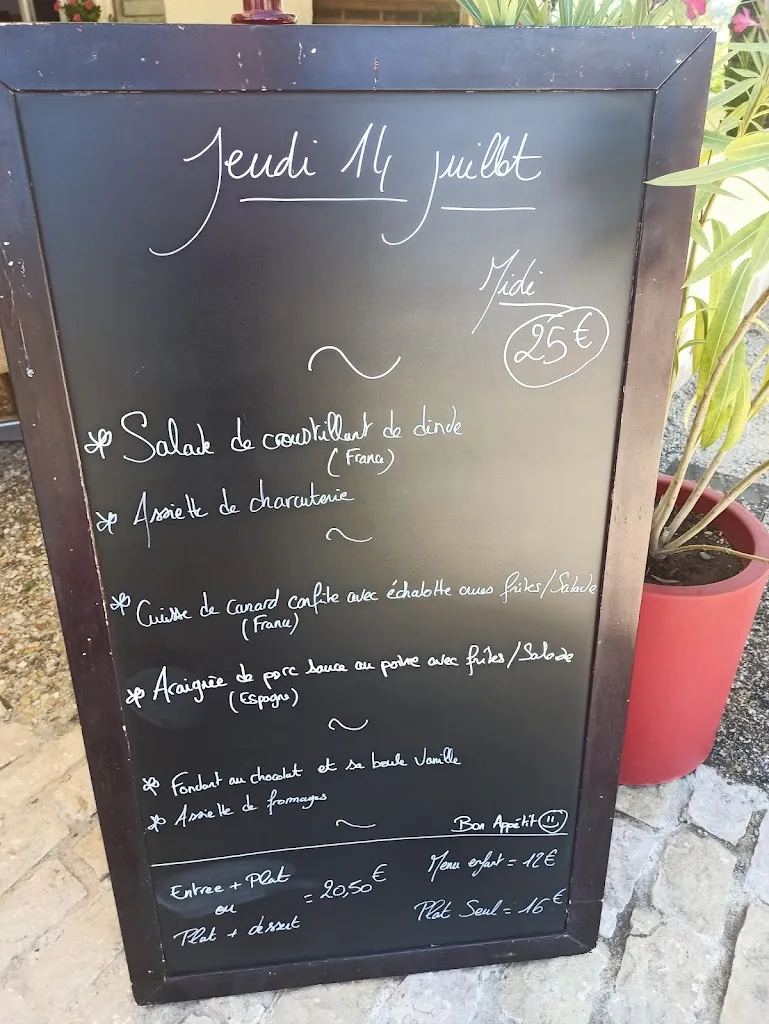 Jeudi 14 juillet
Midi
25€
* Salade de croustillant de dinde
(France)
* Assiette de charcuterie
* Cuisse de canard confite avec échalotte avec frites/Salade
(France)
* Araignée de porc sauce au poivre avec frites/Salade
(Espagne)
* Fondant au chocolat et sa boule vanille
* Assiette de fromages
Bon Appétit
Entrée + Plat
ou
Plat + dessert
= 20,50€
Menu enfant = 12€
Plat Seul = 16€